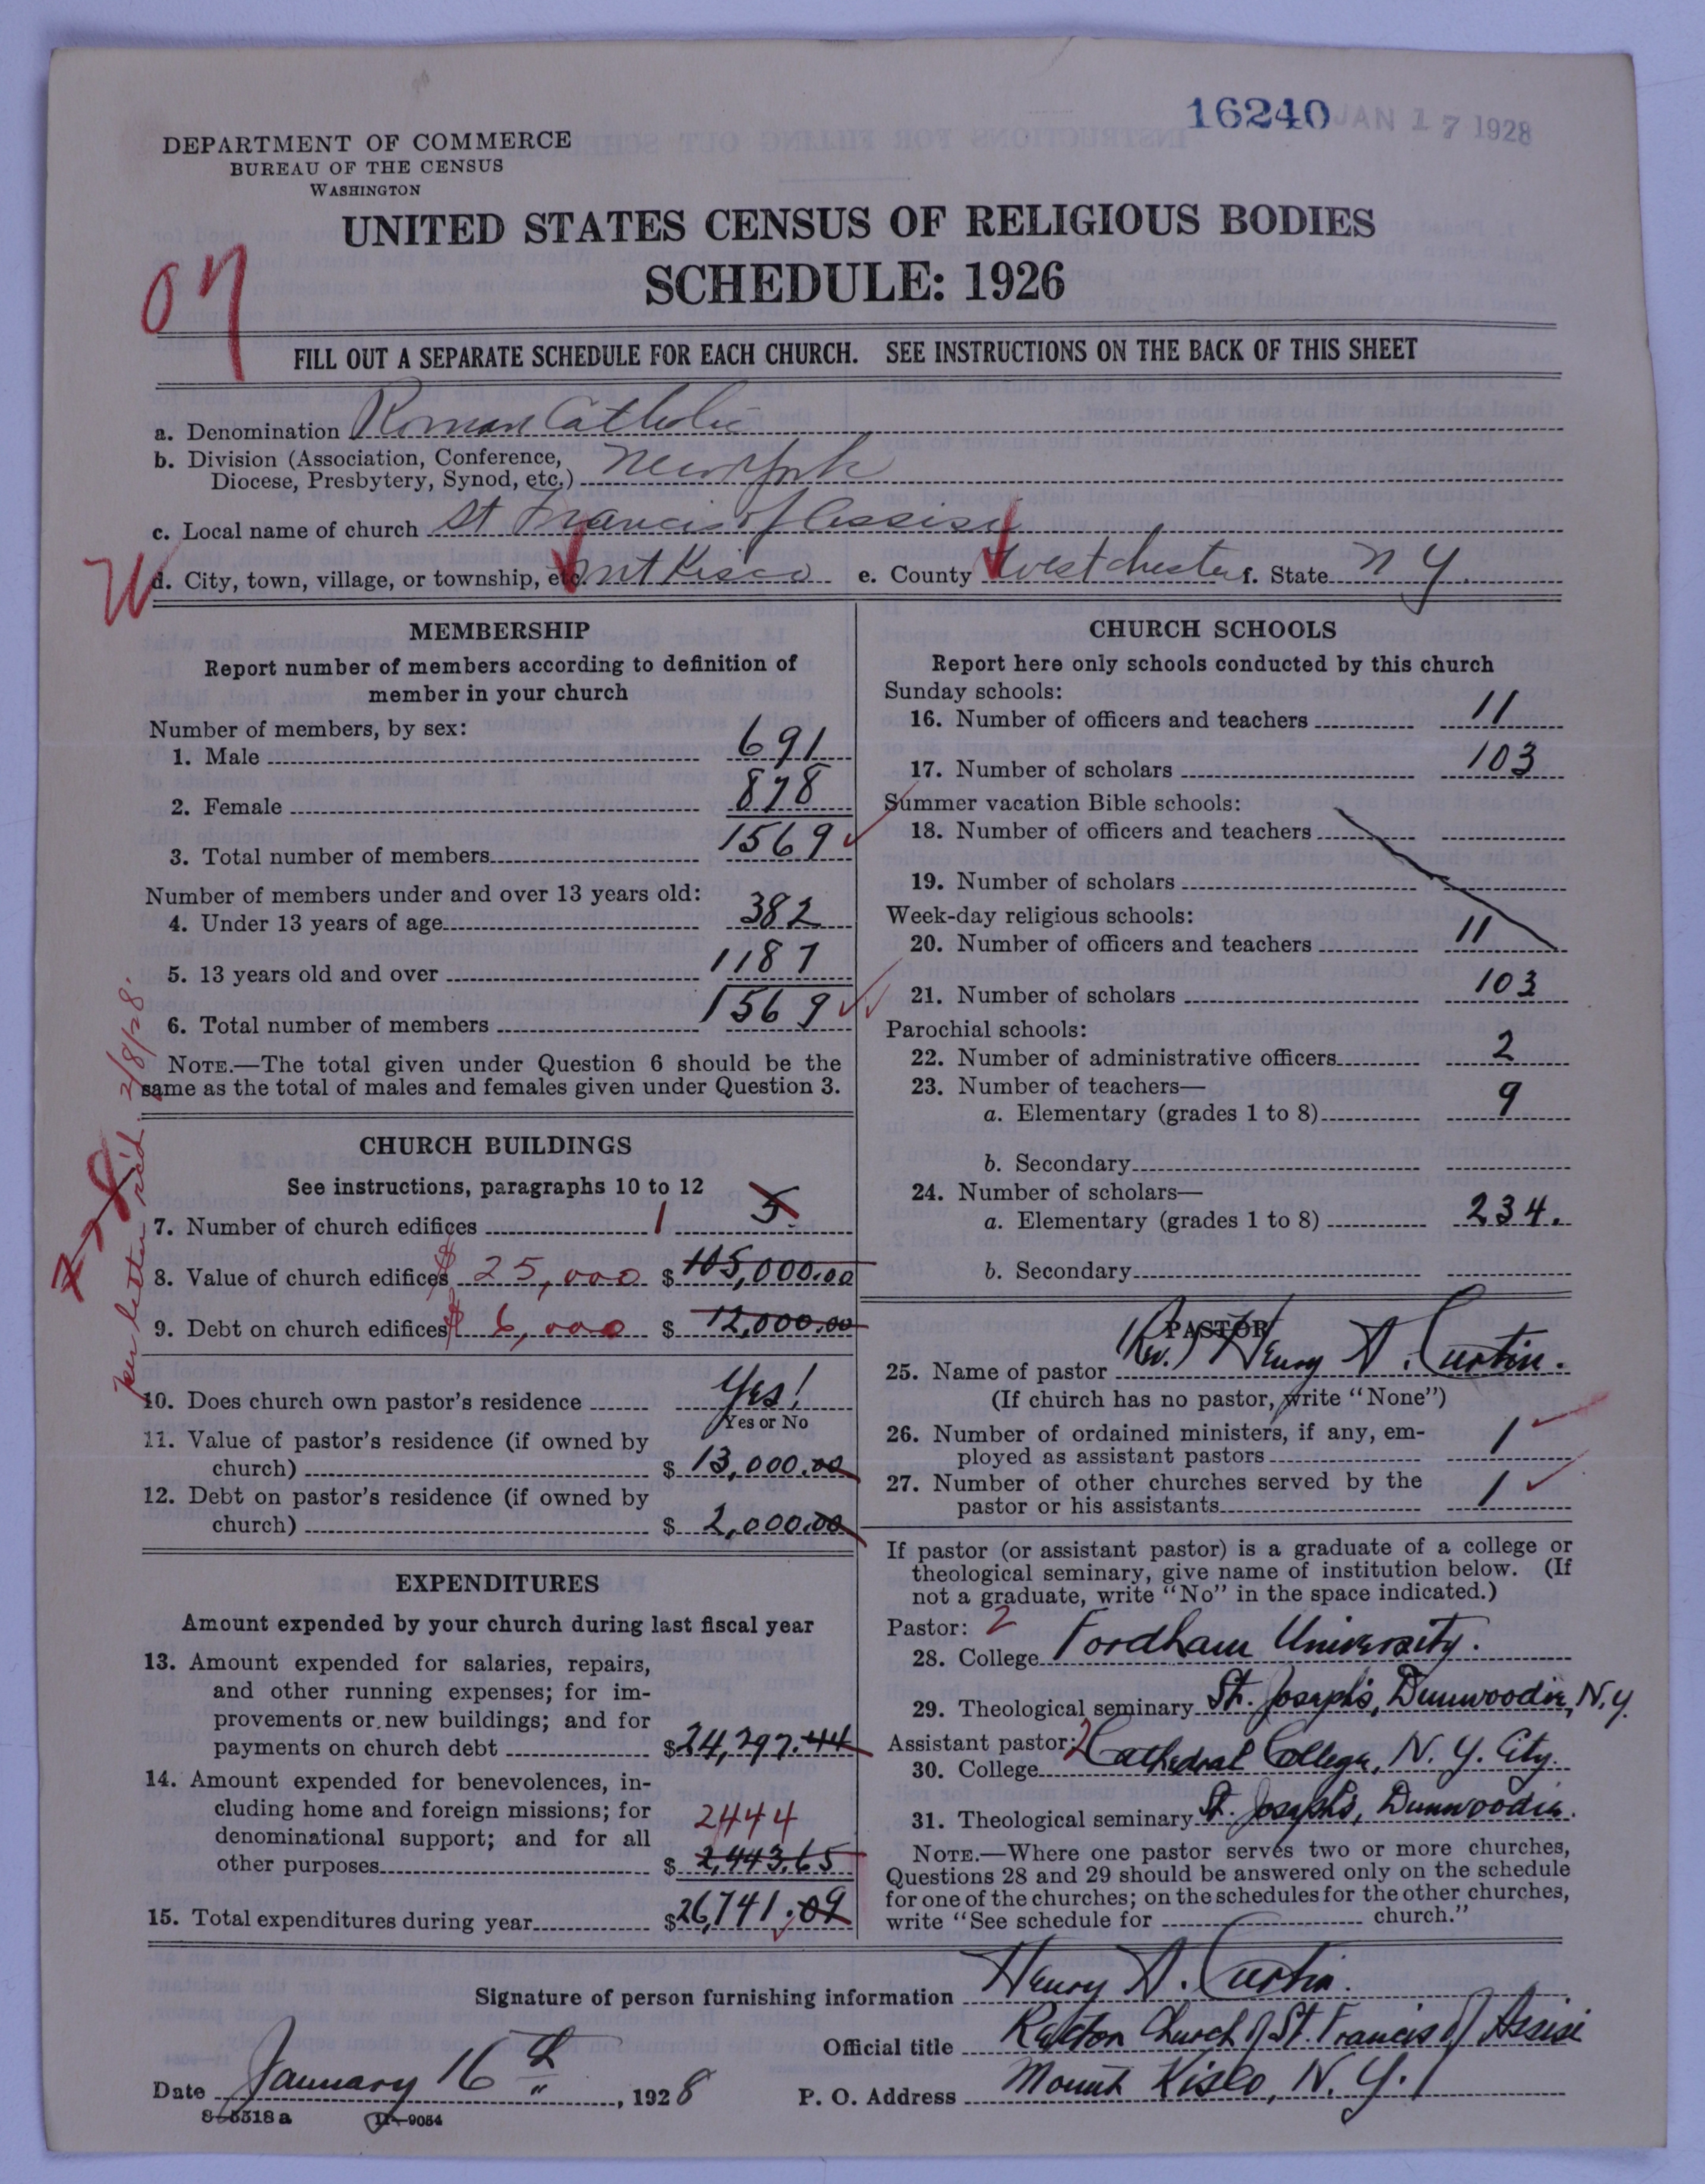 16240 JAN 17 1928
DEPARTMENT OF COMMERCE
BUREAU OF THE CENSUS
WASHINGTON
UNITED STATES CENSUS OF RELIGIOUS BODIES
SCHEDULE: 1926
FILL OUT A SEPARATE SCHEDULE FOR EACH CHURCH. SEE INSTRUCTIONS ON THE BACK OF THIS SHEET
a. Denomination Roman Catholic
b. Division (Association, Conference,
Diocese, Presbytery, Synod, etc.) New York
c. Local name of church St Francis of Assissi
d. City, town, village, or township, etc. Mt Kisco e. County Westchester f. State N Y.
MEMBERSHIP
Report number of members according to definition of
member in your church
Number of members, by sex:
1. Male 691
2. Female 878
3. Total number of members 1569
Number of members under and over 13 years old:
4. Under 13 years of age 382
5. 13 years old and over 1187
6. Total number of members 1569
NOTE.—The total given under Question 6 should be the
same as the total of males and females given under Question 3.
CHURCH BUILDINGS
See instructions, paragraphs 10 to 12
7. Number of church edifices 1 5
8. Value of church edifices $ 25,000 $ 105,000.00
9. Debt on church edifices $ 6,000 $ 12,000.00
per letter rec'd 2/8/28.
10. Does church own pastor's residence Yes!
Yes or No
11. Value of pastor's residence (if owned by
church) $ 13,000.00
12. Debt on pastor's residence (if owned by
church) $ 2,000.00
EXPENDITURES
Amount expended by your church during last fiscal year
13. Amount expended for salaries, repairs,
and other running expenses; for im-
provements or new buildings; and for
payments on church debt $24,297.44
14. Amount expended for benevolences, in-
cluding home and foreign missions; for
denominational support; and for all 2444
other purposes $ 2,443.65
15. Total expenditures during year $26,741.09
CHURCH SCHOOLS
Report here only schools conducted by this church
Sunday schools:
16. Number of officers and teachers 11
17. Number of scholars 103
Summer vacation Bible schools:
18. Number of officers and teachers
19. Number of scholars
Week-day religious schools:
20. Number of officers and teachers 11
21. Number of scholars 103
Parochial schools:
22. Number of administrative officers 2
23. Number of teachers—
a. Elementary (grades 1 to 8) 9
b. Secondary
24. Number of scholars—
a. Elementary (grades 1 to 8) 234.
b. Secondary
PASTOR
25. Name of pastor (Rev.) Henry A. Curtin.
(If church has no pastor, write "None")
26. Number of ordained ministers, if any, em-
ployed as assistant pastors 1
27. Number of other churches served by the
pastor or his assistants 1
If pastor (or assistant pastor) is a graduate of a college or
theological seminary, give name of institution below. (If
not a graduate, write "No" in the space indicated.)
Pastor: 2
28. College Fordham University.
29. Theological seminary St. Joseph's, Dunwoodie, N.Y.
Assistant pastor: 2
30. College Cathedral College, N. Y. City.
31. Theological seminary St. Joseph's, Dunwoodie.
NOTE.—Where one pastor serves two or more churches,
Questions 28 and 29 should be answered only on the schedule
for one of the churches; on the schedules for the other churches,
write "See schedule for church."
Signature of person furnishing information Henry A. Curtin.
Official title Rector Church of St. Francis of Assisi
Date January 16th, 1928 P. O. Address Mount Kisco, N. Y.
8-5518a 11-9054